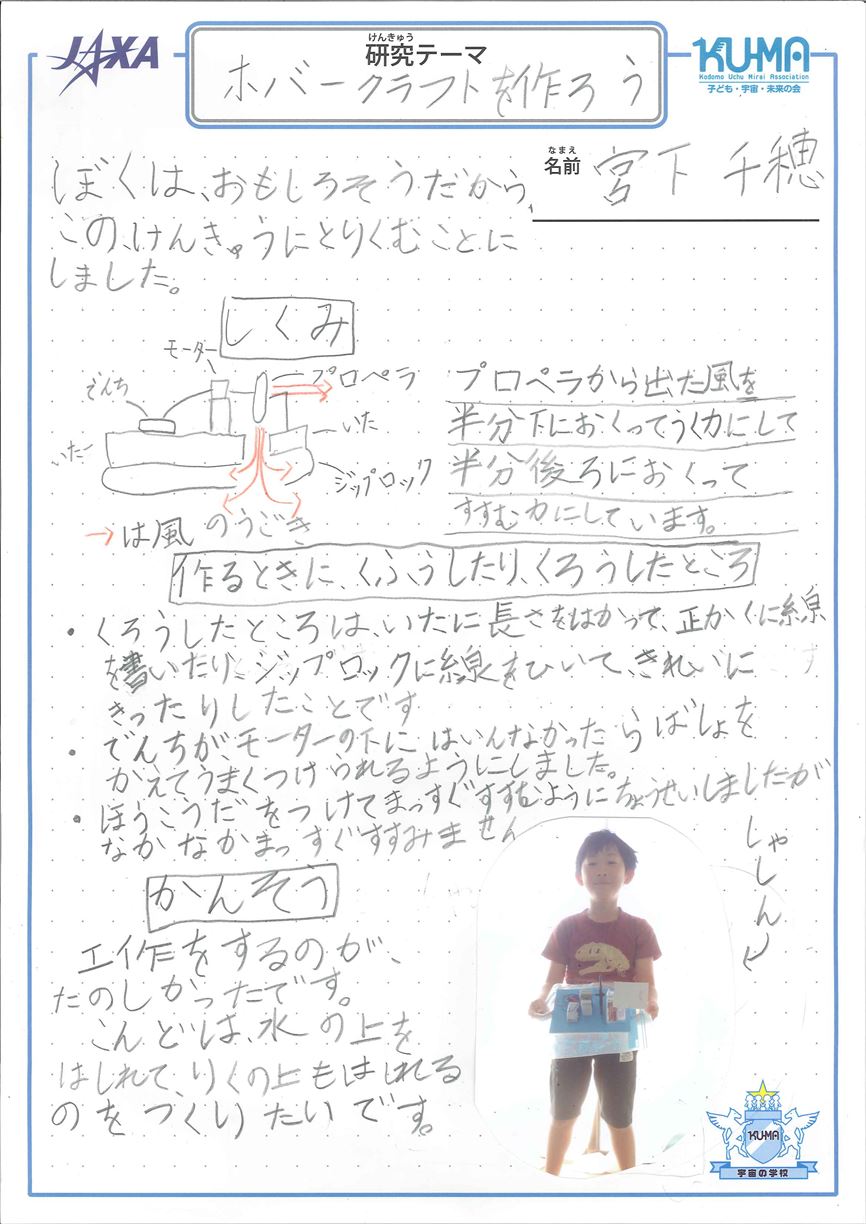 JAXA
けんきゅう
研究テーマ
ホバークラフトを作ろう
KU-MA
Kodomo Uchu Mirai Association
子ども・宇宙・未来の会
なまえ
名前
宮下 千穂
ぼくは、おもしろそうだから、
この、けんきゅうにとりくむことに
しました。
しくみ
モーター
プロペラ
でんち
いた
いた
ジップロック
→は風のうごき
プロペラから出た風を
半分下におくってうく力にして
半分後ろにおくって
すすむ力にしています。
作るときに、くふうしたり、くろうしたところ
・くろうしたところは、いたに長さをはかって、正かくに線
を書いたり、ジップロックに線をひいて、きれいに
きったりしたことです
・でんちが、モーターの下に、はいんなかったらばしょを
かえてうまくつけられるようにしました。
・ほうこうだをつけてまっすぐすすむようにちょうせいしましたが
なかなかまっすぐすすみません
しゃしん
かんそう
工作をするのが、
たのしかったです。
こんどは、水の上を
はしれて、りくの上もはしれる
のをつくりたいです。
KU-MA
宇宙の学校